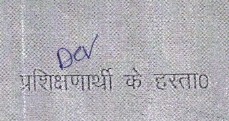 Dev
प्रशिक्षणार्थी के हस्ता0